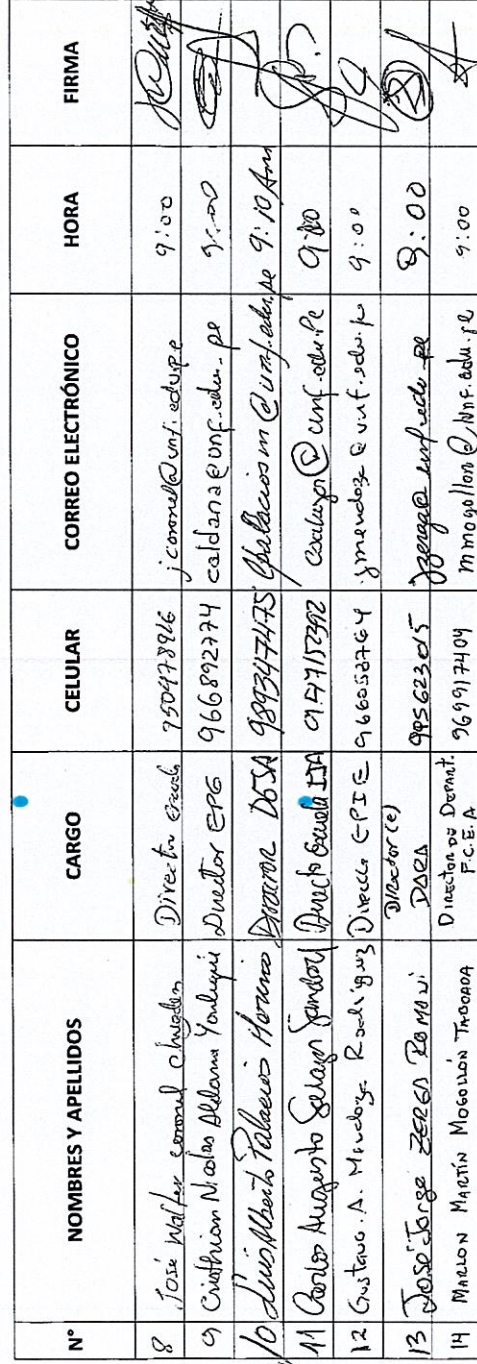 N° NOMBRES Y APELLIDOS CARGO CELULAR CORREO ELECTRÓNICO HORA FIRMA
8 José Walter coronel chugden Director 950978926 jcoronel@unf.edu.pe 9:00
9 Cristhian Nicolas Aldana Yarlequé Director EPG 966892774 caldana@unf.edu.pe 9:00
10 Luis Alberto Palacios Moreno Director 9893747475 @unf.edu.pe 9:10 Am
11 Carlos Augusto Salazar Sandoval Director Escuela IIA 947152392 Csalazar@unf.edu.pe 9:00
12 Gustavo. A. Mendoza Rodriguez EPIE 966052764 gmendoza@unf.edu.pe 9:00
13 José Jorge ZERGA ROMANÍ Director(e) DARA 905623015 jzerga@unf.edu.pe 9:00
14 MARLON MARTÍN MOGOLLÓN TABOADA DIRECTOR DE DEPART. F.C.E.A 969917404 mmogollon@unf.edu.pe 9:00